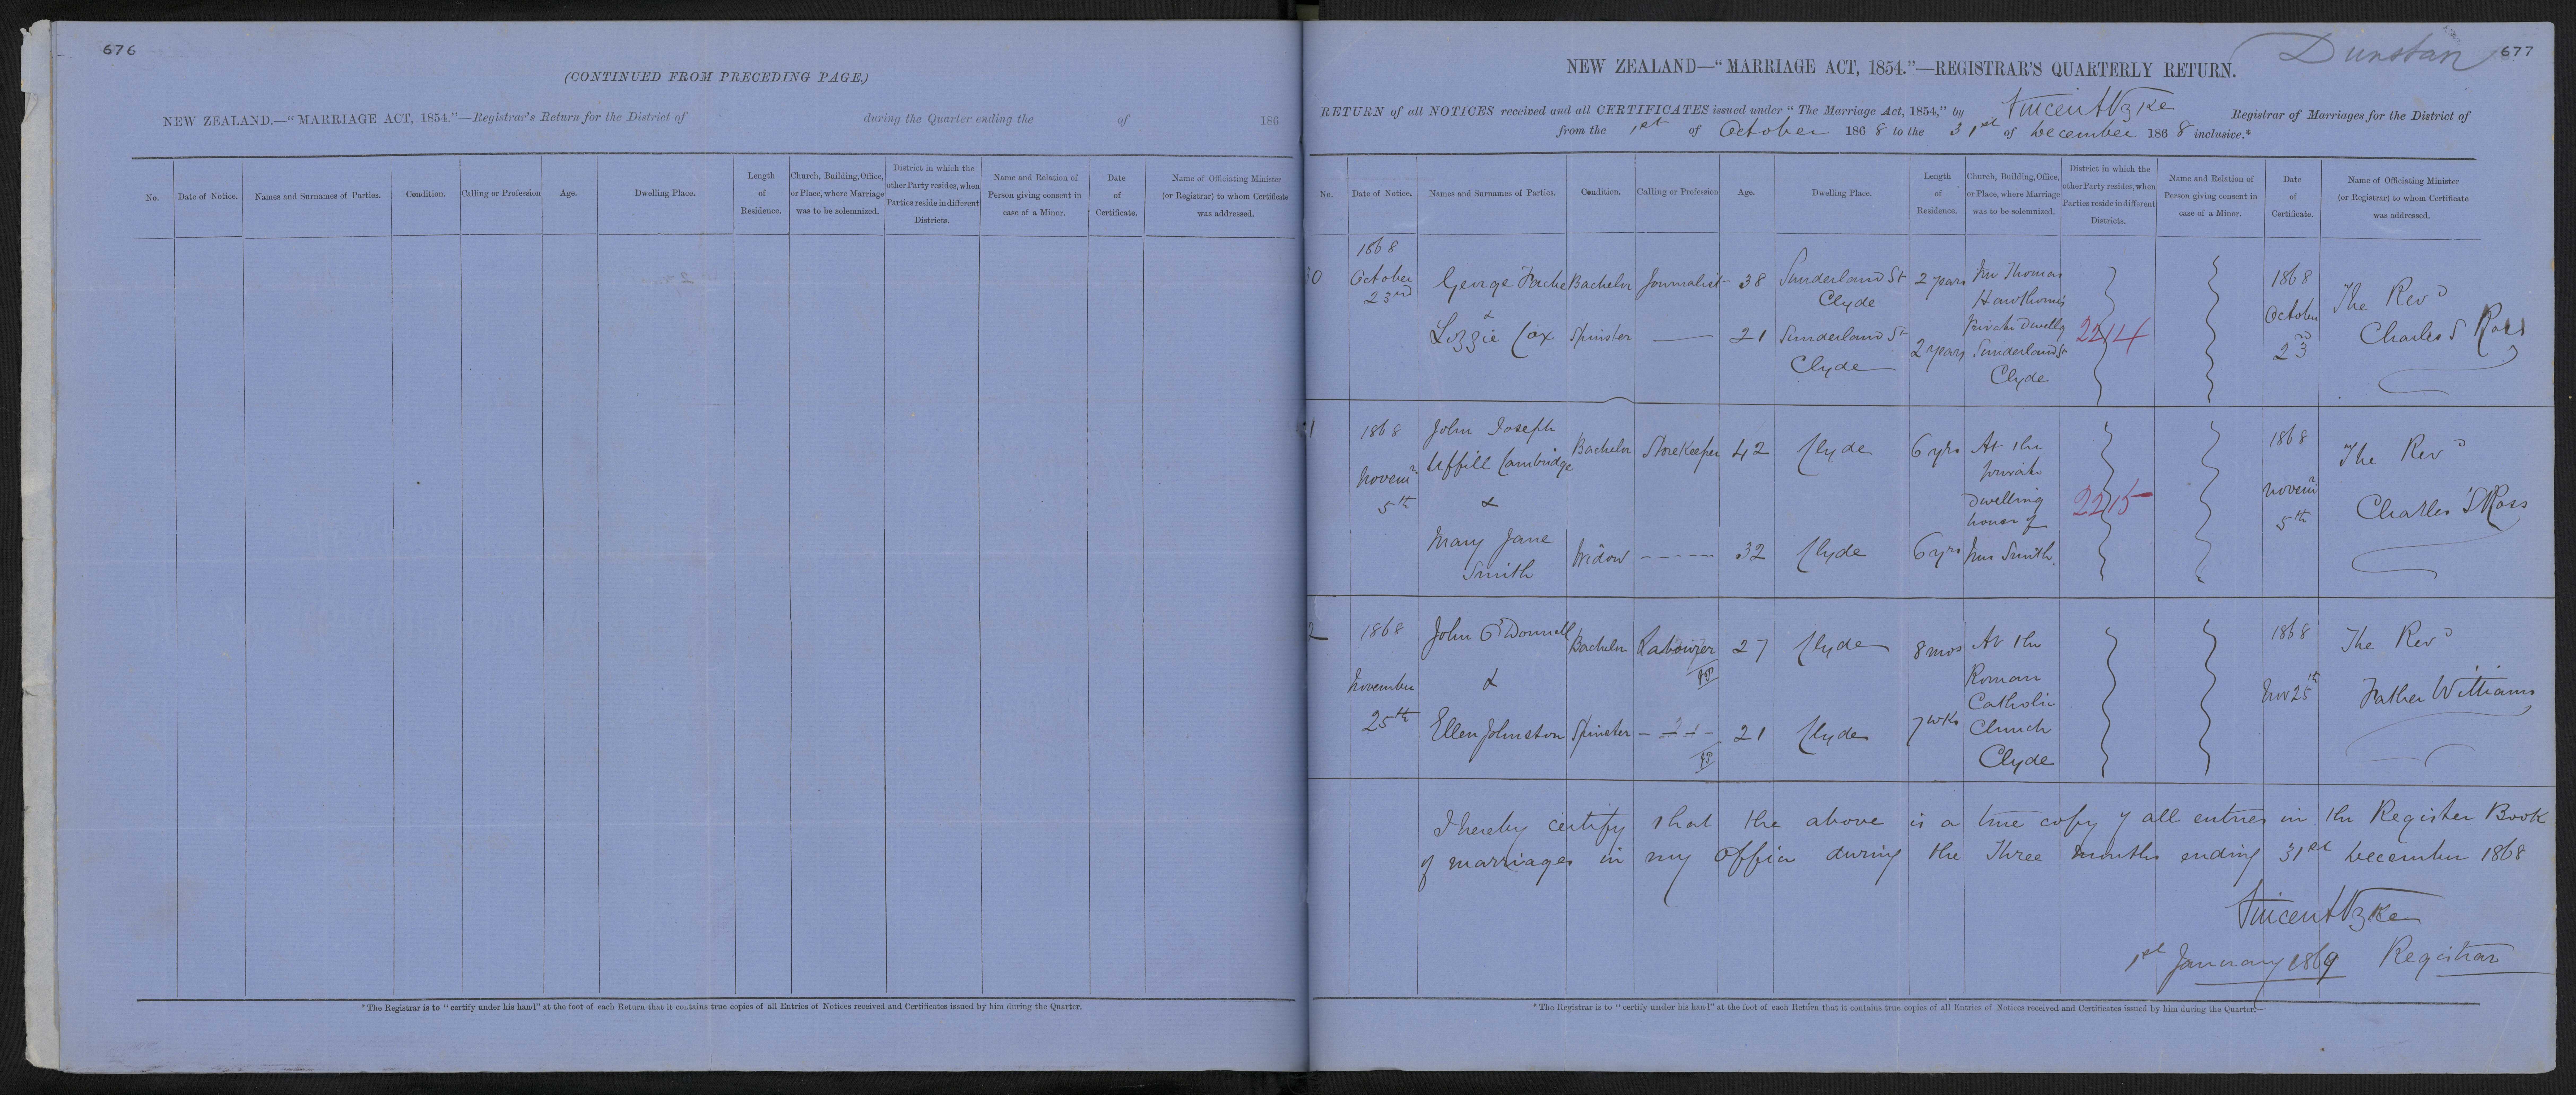 676
(CONTINUED FROM PRECEDING PAGE.)
NEW ZEALAND.—"MARRIAGE ACT, 1854."—Registrar's Return for the District of during the Quarter ending the of 186
No.
Date of Notice.
Names and Surnames of Parties.
Condition.
Calling or Profession
Age.
Dwelling Place.
Length
of
Residence.
Church, Building, Office,
or Place, where Marriage
was to be solemnized.
District in which the
other Party resides, when
Parties reside in different
Districts.
Name and Relation of
Person giving consent in
case of a Minor.
Date
of
Certificate.
Name of Officiating Minister
(or Registrar) to whom Certificate
was addressed.
* The Registrar is to "certify under his hand" at the foot of each Return that it contains true copies of all Entries of Notices received and Certificates issued by him during the Quarter.
Dunstan 677
NEW ZEALAND—"MARRIAGE ACT, 1854."—REGISTRAR'S QUARTERLY RETURN.
RETURN of all NOTICES received and all CERTIFICATES issued under "The Marriage Act, 1854," by Vincent Pyke Registrar of Marriages for the District of
from the 1st of October 1868 to the 31st of December 1868 inclusive.*
No.
Date of Notice.
Names and Surnames of Parties.
Condition.
Calling or Profession
Age.
Dwelling Place.
Length
of
Residence.
Church, Building, Office,
or Place, where Marriage
was to be solemnized.
District in which the
other Party resides, when
Parties reside in different
Districts.
Name and Relation of
Person giving consent in
case of a Minor.
Date
of
Certificate.
Name of Officiating Minister
(or Registrar) to whom Certificate
was addressed.
0
1868
October
23rd
George Fache
&
Lizzie Cox
Bachelor
Spinster
Journalist
38
21
Sunderland St
Clyde
Sunderland St
Clyde
2 years
2 years
Thomas
Hawthorne's
Private Dwellg
Sunderland St
Clyde
2214
1868
October
23rd
The Revd
Charles S Ross
1
1868
Novemr
5th
John Joseph
Uffill Cambridge
&
Mary Jane
Smith
Bachelor
Widow
StoreKeeper
42
32
Clyde
Clyde
6 yrs
6 yrs
At the
private
dwelling
house of
Mrs Smith.
2215
1868
Novemr
5th
The Revd
Charles S Ross
2
1868
November
25th
John O'Donnell
&
Ellen Johnston
Bachelor
Spinster
Labourer
27
21
Clyde
Clyde
8 mos
7 wks
At the
Roman
Catholic
Church
Clyde
1868
Nov 25th
The Revd
Father Williams
I hereby certify that the above is a true copy of all entries in the Register Book
of marriages in my office during the three months ending 31st December 1868
Vincent Pyke
1st January 1869 Registrar
* The Registrar is to "certify under his hand" at the foot of each Return that it contains true copies of all Entries of Notices received and Certificates issued by him during the Quarter.